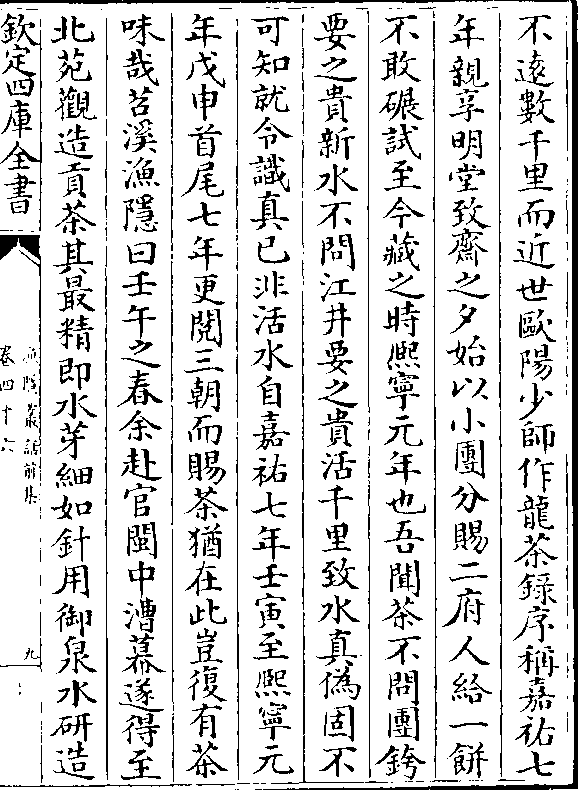 不逺數千里而近世歐陽少師作龍茶録序稱嘉祐七
年親享明堂致齋之夕始以小團分賜二府人給一餅
不敢碾試至今藏之時熈寧元年也吾聞茶不問團銙
要之貴新水不問江井要之貴活千里致水真偽固不
可知就令識真已非活水自嘉祐七年壬寅至熈寧元
年戊申首尾七年更閱三朝而賜茶猶在此豈復有茶
味哉苕溪漁隱曰壬午之春余赴官閩中漕幕遂得至
北苑觀造貢茶其最精即水芽細如針用御泉水研造
欽定四庫全書
漁隠叢話前集
卷四十六
九